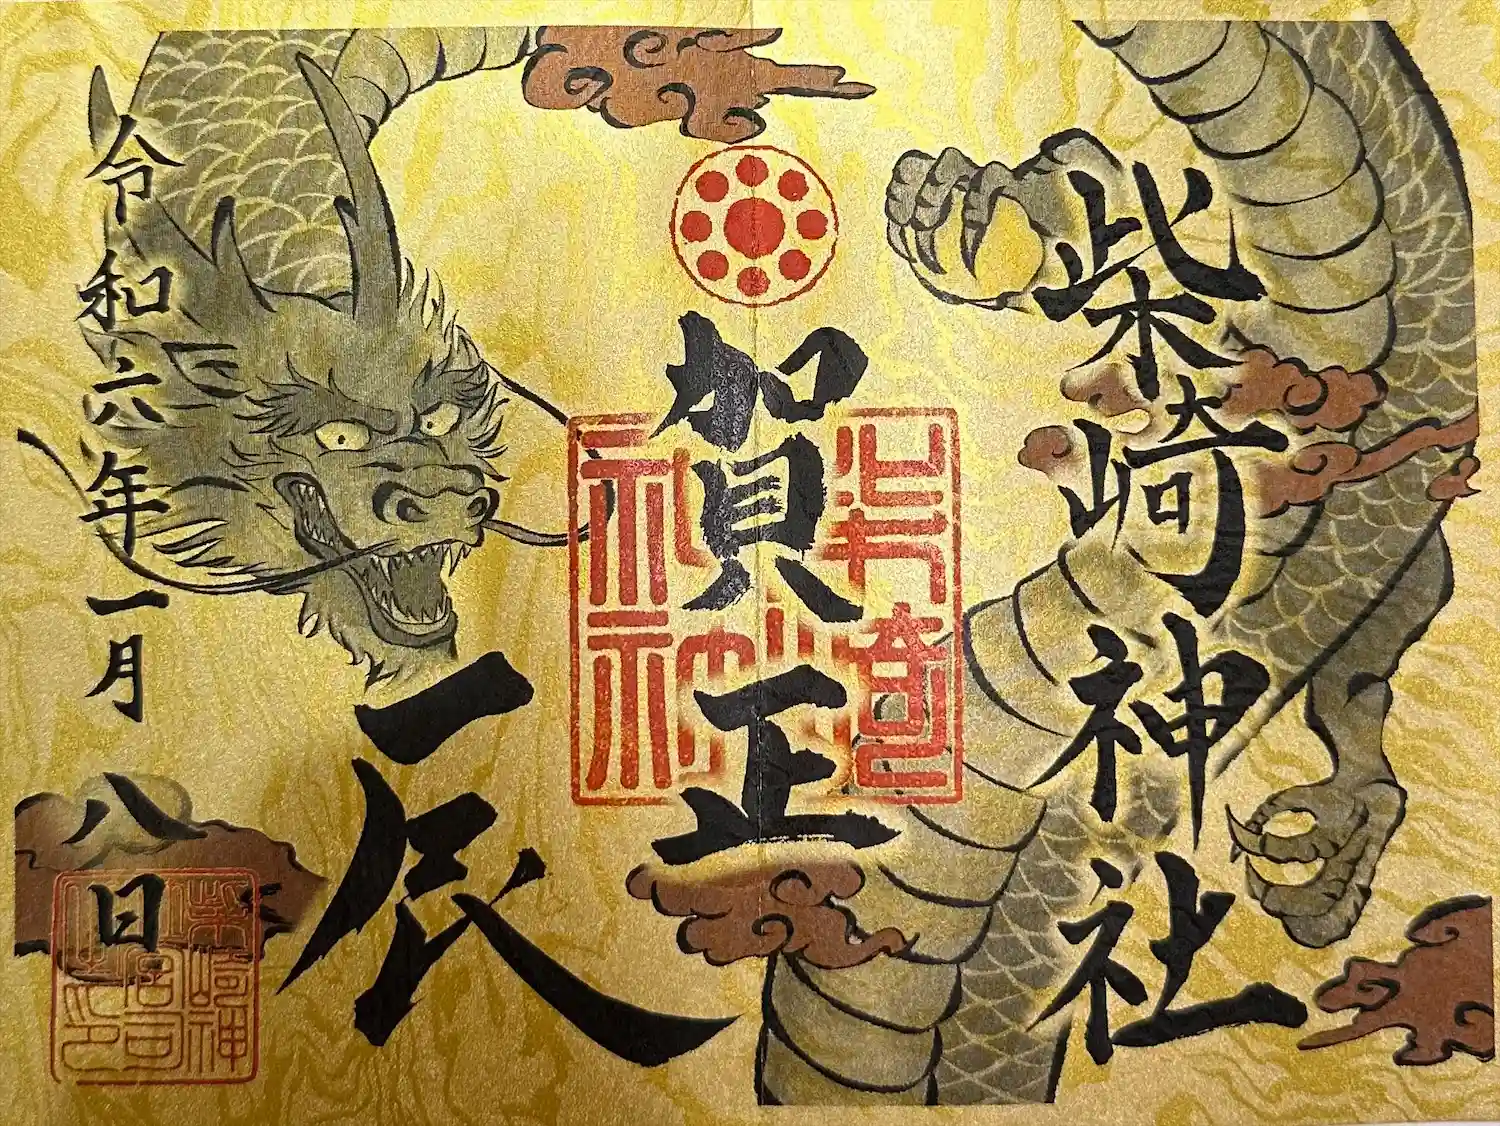 柴崎神社
賀正
辰
令和六年一月八日
柴崎神社
柴崎神社宮司之印